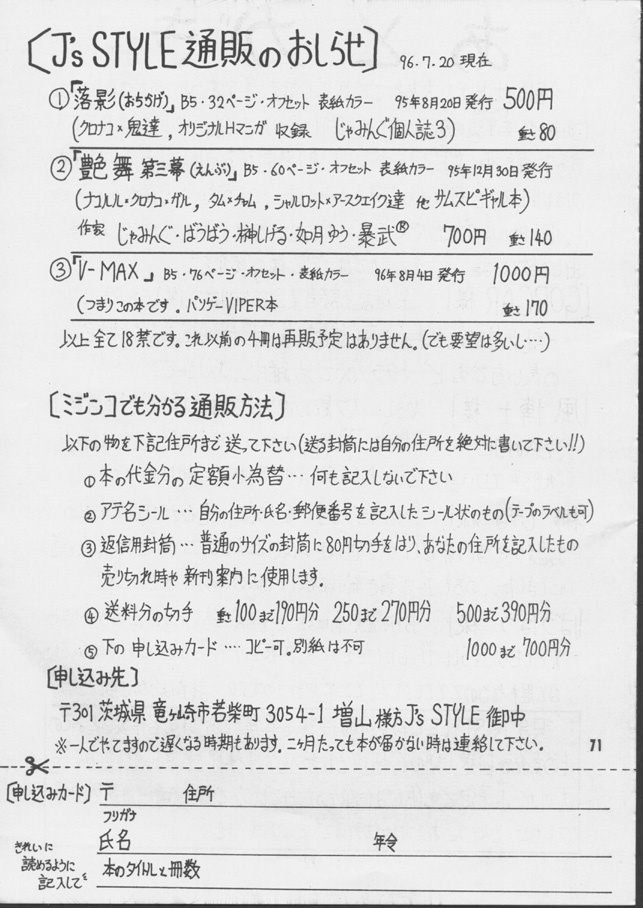 [J's STYLE 通販のおしらせ] 96.7.20 現在
①「落影(おちかげ)」 B5・32ページ・オフセット 表紙カラー 95年8月20日発行 500円
(クロナコ×鬼達, オリジナルHマンガ 収録 じゃみんぐ個人誌3) 重さ80
②「艶舞 第三幕(えんぶ)」 B5・60ページ・オフセット 表紙カラー 95年12月30日発行
(ナコルル・クロナコ×ガル, タム×チャム, シャルロット×アースクエイク達 他 サムスピギャル本)
作家 じゃみんぐ・ばうばう・榊しげる・如月ゆう・暴武® 700円 重さ140
③「V-MAX」 B5・76ページ・オフセット・表紙カラー 96年8月4日発行 1000円
(つまりこの本です。パソゲーVIPER本 重さ170
以上全て18禁です。これ以前の4冊は再販予定はありません。(でも要望は多いし…)
[ミジンコでも分かる通販方法]
以下の物を下記住所まで送って下さい(送る封筒には自分の住所を絶対に書いて下さい!!)
① 本の代金分の定額小為替… 何も記入しないで下さい
② アテ名シール … 自分の住所・氏名・郵便番号を記入したシール状のもの(テープのラベルも可)
③ 返信用封筒… 普通のサイズの封筒に80円切手をはり、あなたの住所を記入したもの
売り切れ時や新刊案内に使用します。
④ 送料分の切手 重さ100まで190円分 250まで270円分 500まで390円分
⑤ 下の申し込みカード …. コピー可。別紙は不可 1000まで700円分
[申し込み先]
〒301 茨城県 竜ヶ崎市若柴町 3054-1 増山様方 J's STYLE 御中
※一人でやってますので遅くなる時期もあります。二ヶ月たっても本が届かない時は連絡して下さい。 71
[申し込みカード] 〒 住所
フリガナ
氏名 年令
きれいに読めるように記入してを
本のタイトルと冊数